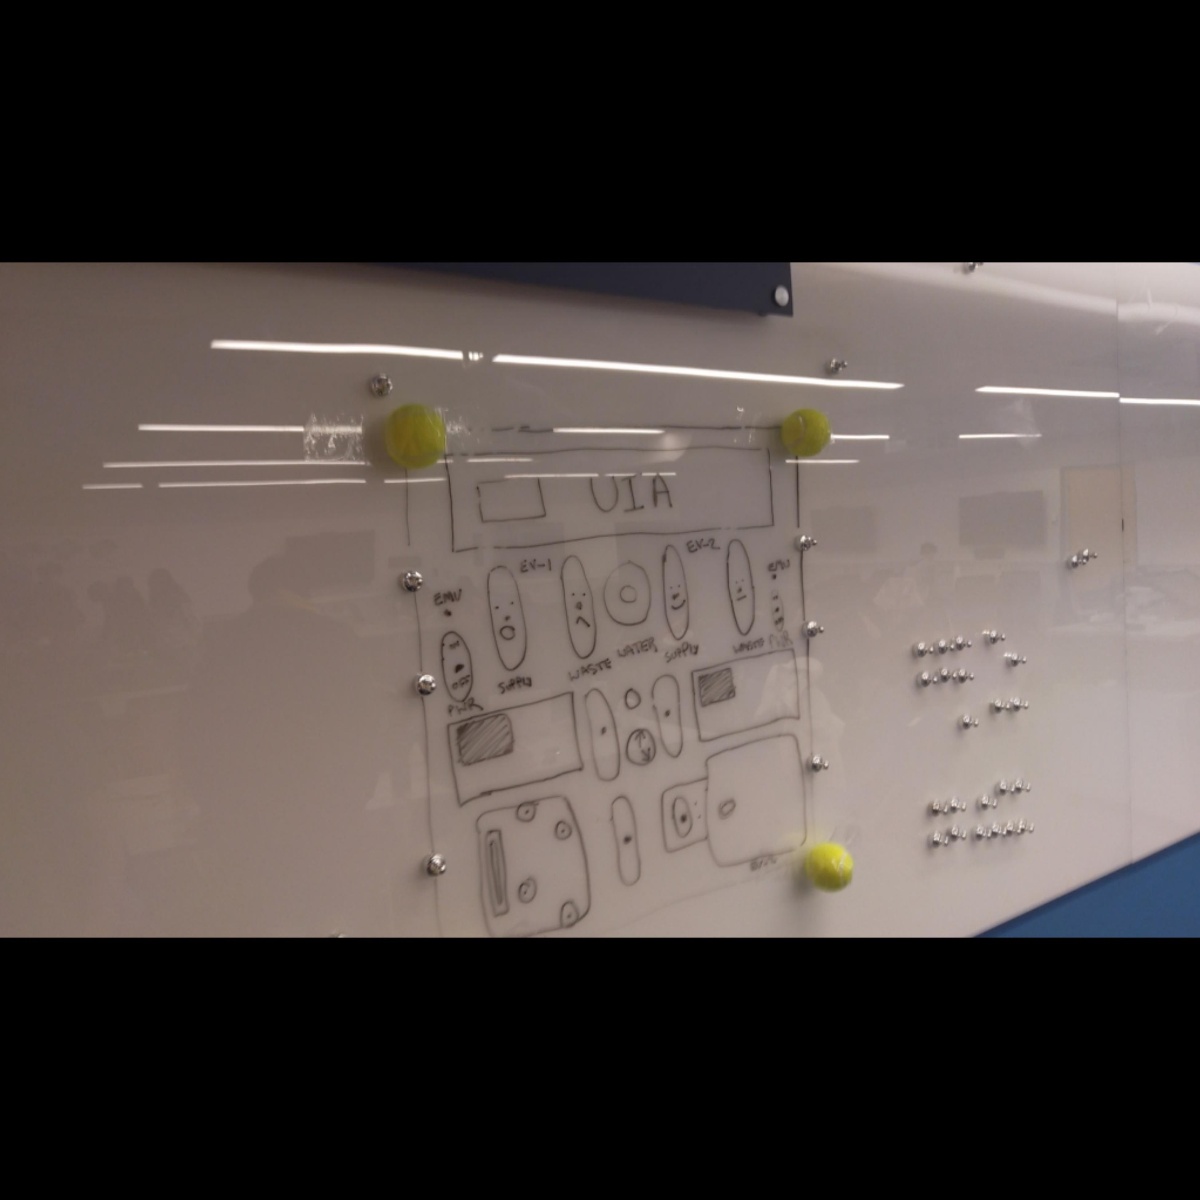 UIA
EV-1
EV-2
EMU
EMU
OFF
PWR
SUPPLY
WASTE
WATER
SUPPLY
WASTE
PWR